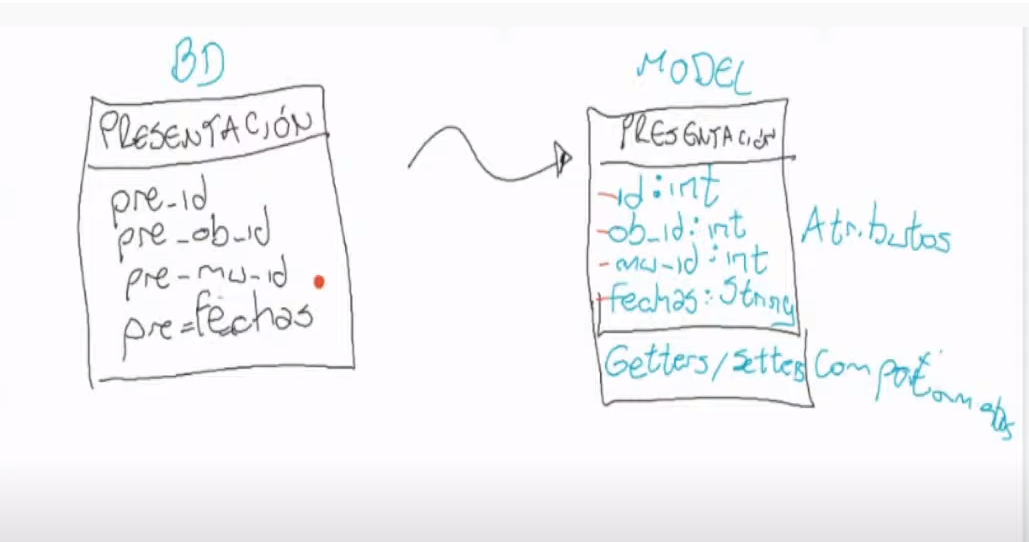 BD
PRESENTACIÓN
pre_id
pre_ob_id
pre-mu-id
pre=fechas
MODEL
PRESENTACIÓN
-id:int
-ob_id:int
-mu-id:int
+fechas:String
Atributos
Getters/Setters